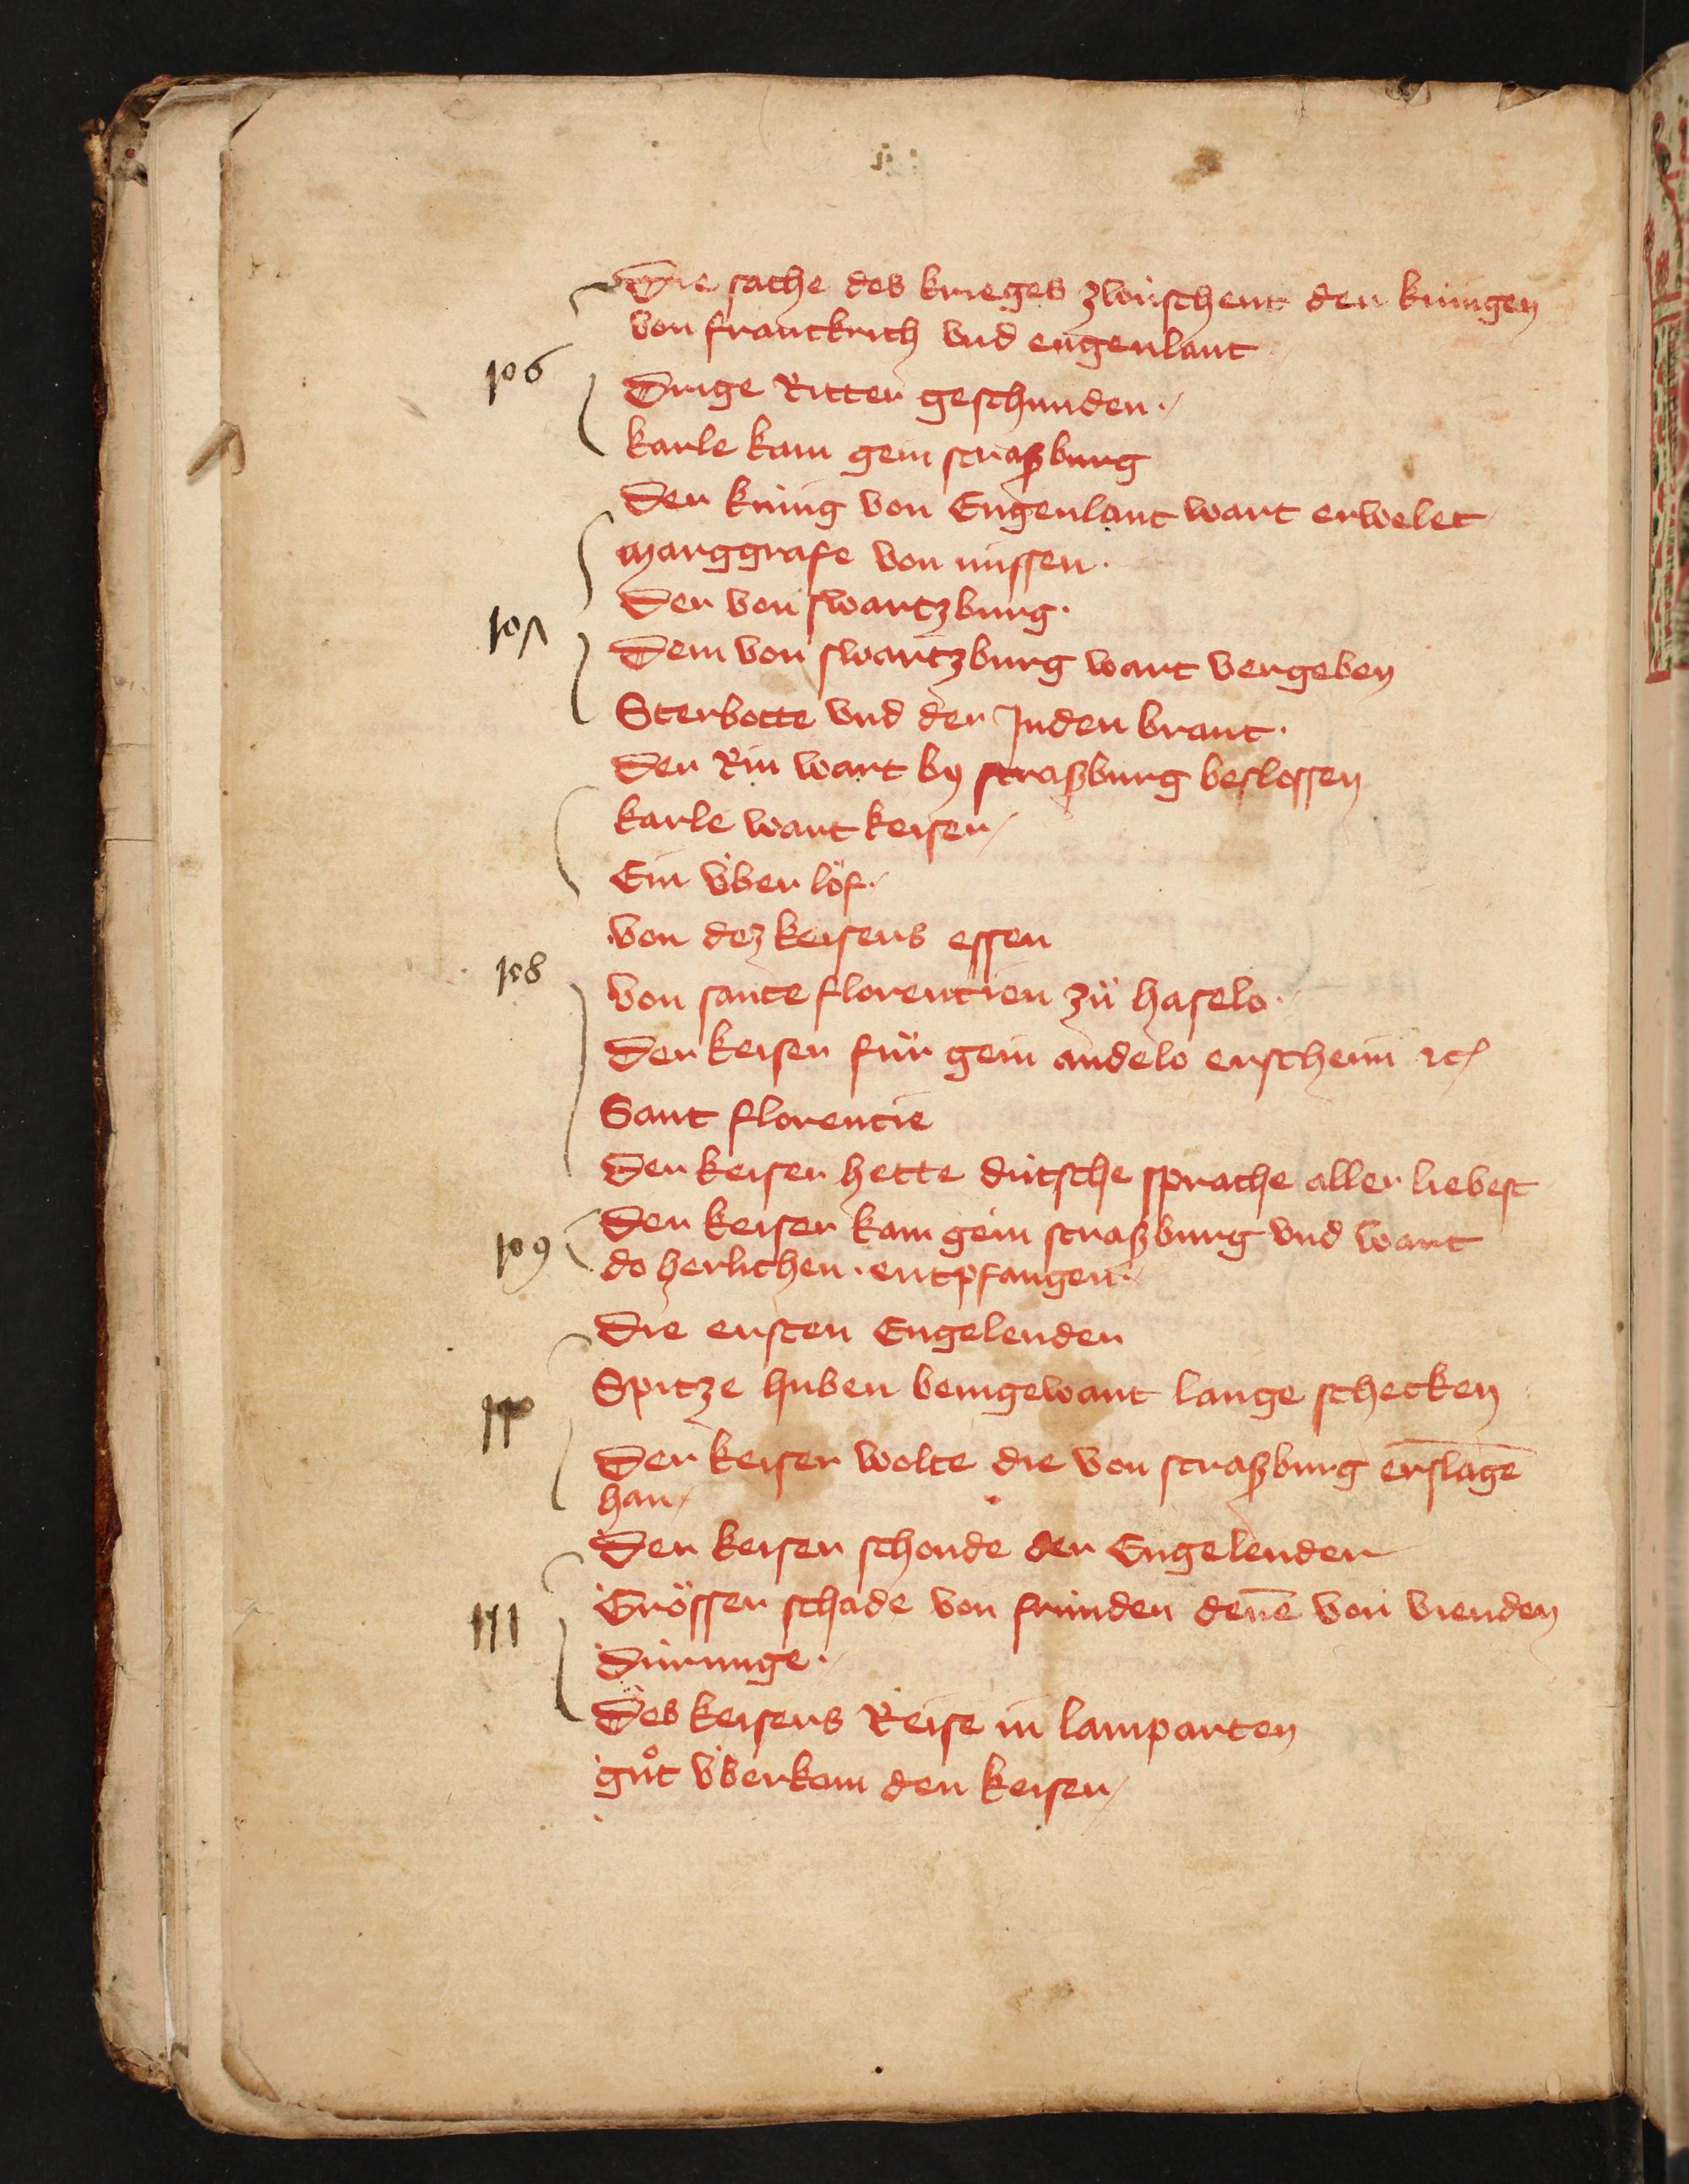 Die sache des krieges zwúschent den kúnigen
von franckrich vnd engenlant
106
Drige Ritter geschunden.
karle kam gein straßburg
Der kúnig von Engenlant wart erwelet
marggrafe von missen.
Der von swartzburg.
107
Dem von swartzburg wart vergeben
Sterbotte vnd der Juden brant.
Der Rin wart by straßburg beslossen
karle wart keiser
Ein v́ber löf.
von dez keisers essen
108
von sante florencien zů haselo.
Der keiser fůr gein andelo erschein ꝛc
Sant florencie
Der keiser hette dútsche sprache aller liebest
Der keiser kam gein straßburg vnd wart
109
do herlichen entpfangen.
Die ersten Engelender
Spitze huben beingewant lange schecken
110
Der keiser wolte die von straßburg erslagē
han
Der keiser schonde der Engelender
Grösser schade von frúnden dēne von vienden
111
Dúrunge.
Des keisers Reise in lamparten
gůt v́berkam den keiser